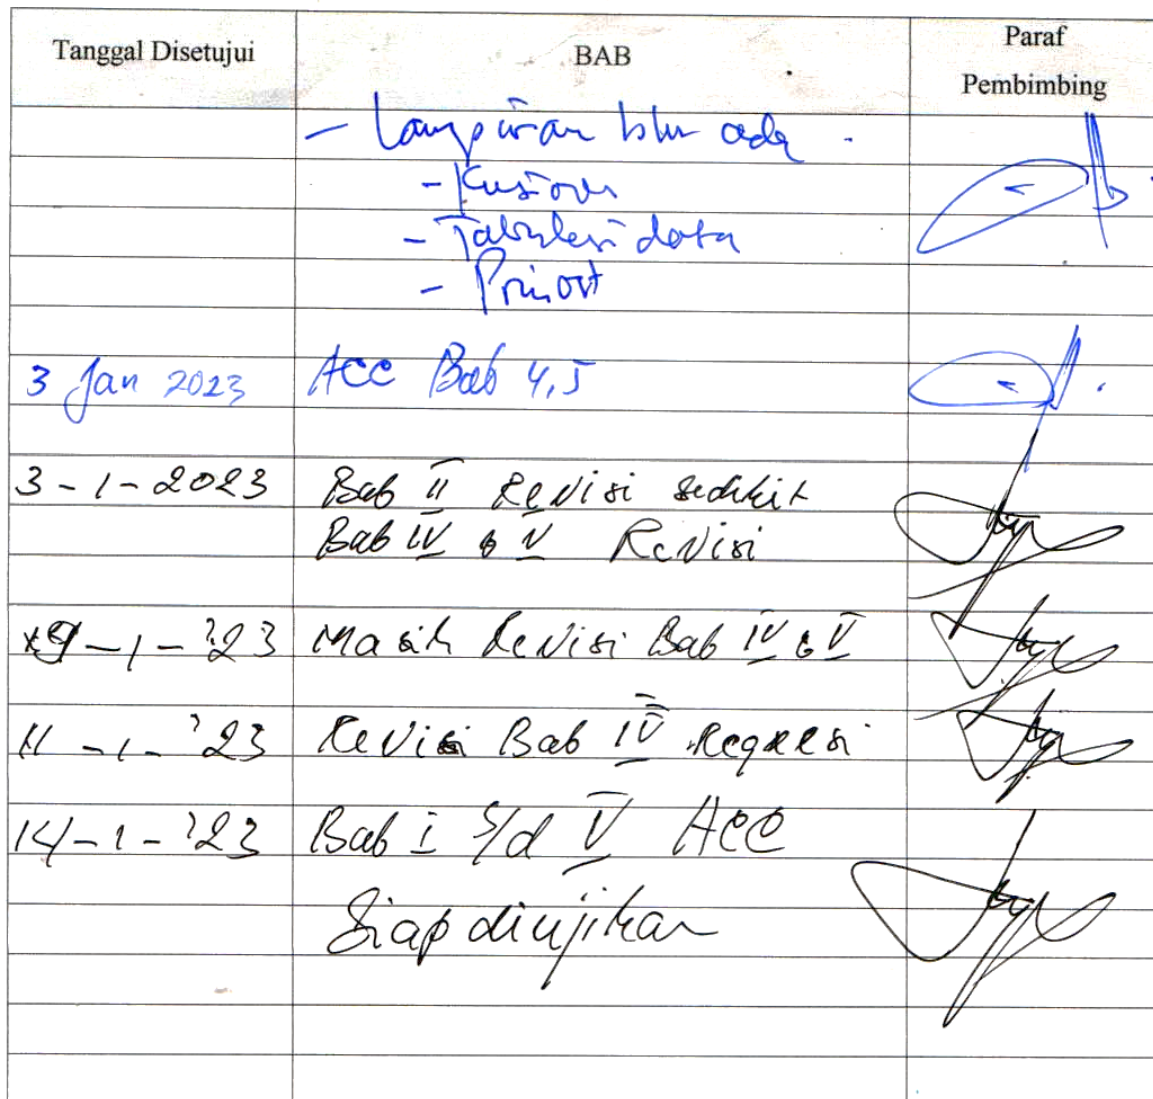 Tanggal Disetujui
BAB
Paraf
Pembimbing
- Lampiran blm ada .
- Kusioner
- Tabulasi data
- Prinout
3 Jan 2023 ACC Bab 4,5
3 - 1 - 2023 Bab II Revisi sedikit
Bab IV & V Revisi
9 - 1 - '23 Masih Revisi Bab IV & V
11 - 1 - '23 Revisi Bab IV Regresi
14 - 1 - '23 Bab I s/d V ACC
Siap diujikan